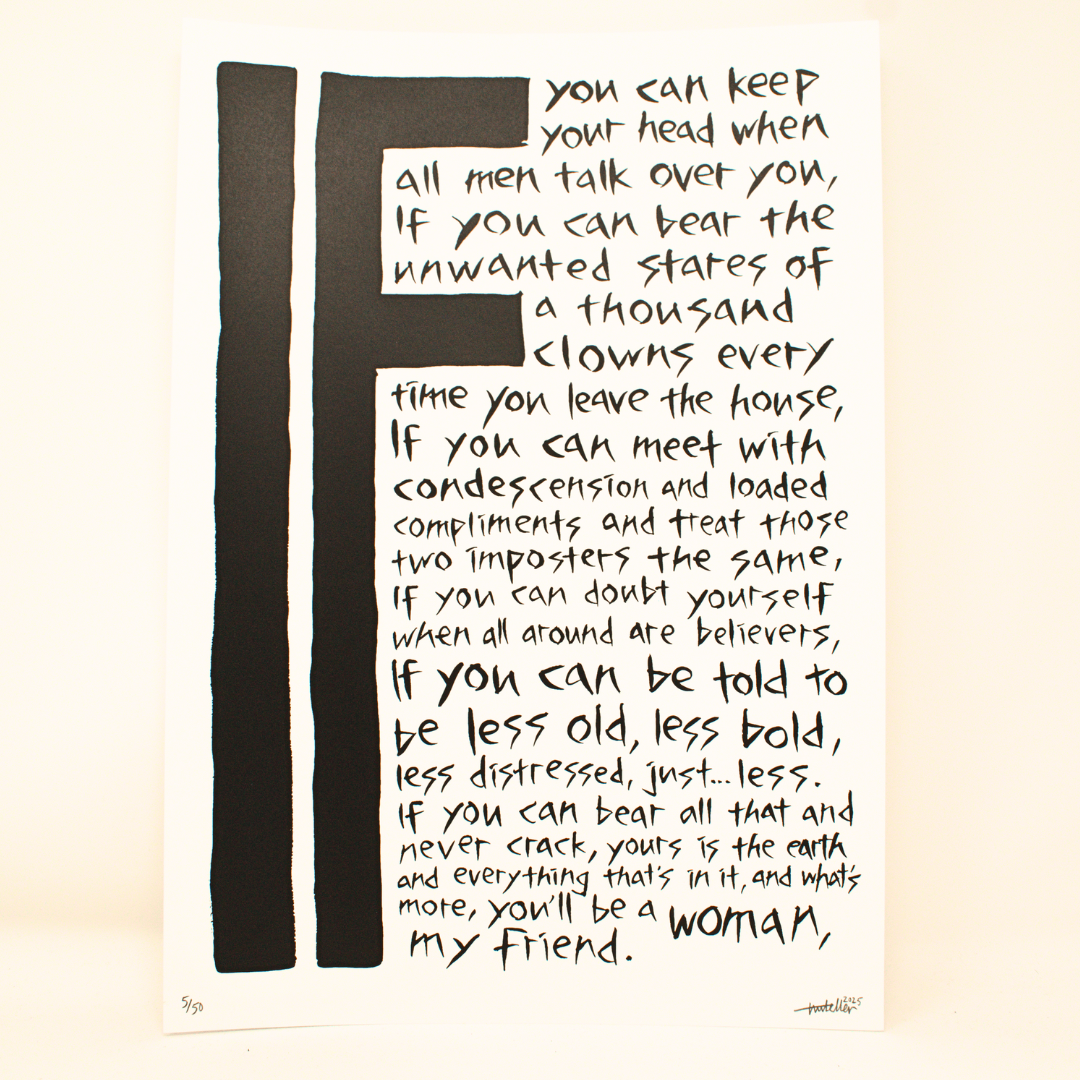 IF
you can keep
your head when
all men talk over you,
If you can bear the
unwanted stares of
a thousand
clowns every
time you leave the house,
If you can meet with
condescension and loaded
compliments and treat those
two imposters the same,
If you can doubt yourself
when all around are believers,
If you can be told to
be less old, less bold,
less distressed, just... less.
If you can bear all that and
never crack, yours is the earth
and everything that's in it, and what's
more, you'll be a woman,
my friend.
5/50
2025